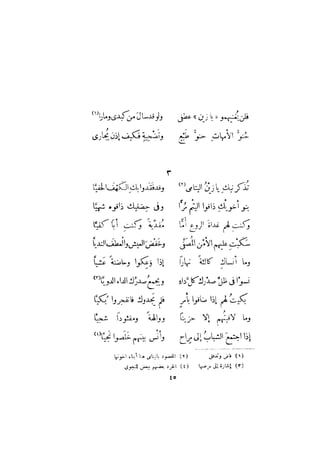 فلن يُغنيهمو « يا زين » عطف ولو قد سال من كبدى وماز(١)
حُنوَّ الأمهاتِ حنوَّ طَبْعٍ وتَضْحيةٍ فكيف إذن يُجارى
٣
تُذكر نيك يا زينُ اليتامى(٢) وقد فقدوا بك الكهف الحفيَّا
بنو أخويْكِ ذاقوا اليُتْم مُرًّا وفى حِضنيكِ ذاقوه شهيَّا
وكنتِ لهم غداة الروع أمًّا مُفدّيةً وكنتِ أبًا كفيَّا
سكبْتِ عليهم الأمن المُصفَّى وخَفْضَ العيش والعطف النديَّا
وما أنساكِ كالئةً نهارًا إذا وعكوا وحاضنةً عشيَّا
نسوا فى ظلّ صدرك كلَّ داء ويجمع صدرُك الداء الدويَّا(٣)
بَكيتُ لهم إذا ضاقوا بأمرٍ فلم يجدوك فانفجروا بُكيَّا
وما لاقيتُهم إلا حزينًا ووالهةً ومفئودًا شجيَّا
إذا اجتمع الشباب إلى مراح وأنس بينهم خَلَصوا نَجيَّا(٤)
(١) فاض وتدفق (٢) المقصود باليتامى هنا أبناء أخويها
(٣) إشارة إلى مرضها (٤) انفرد بعضهم ببعض للنجوى
٤٥